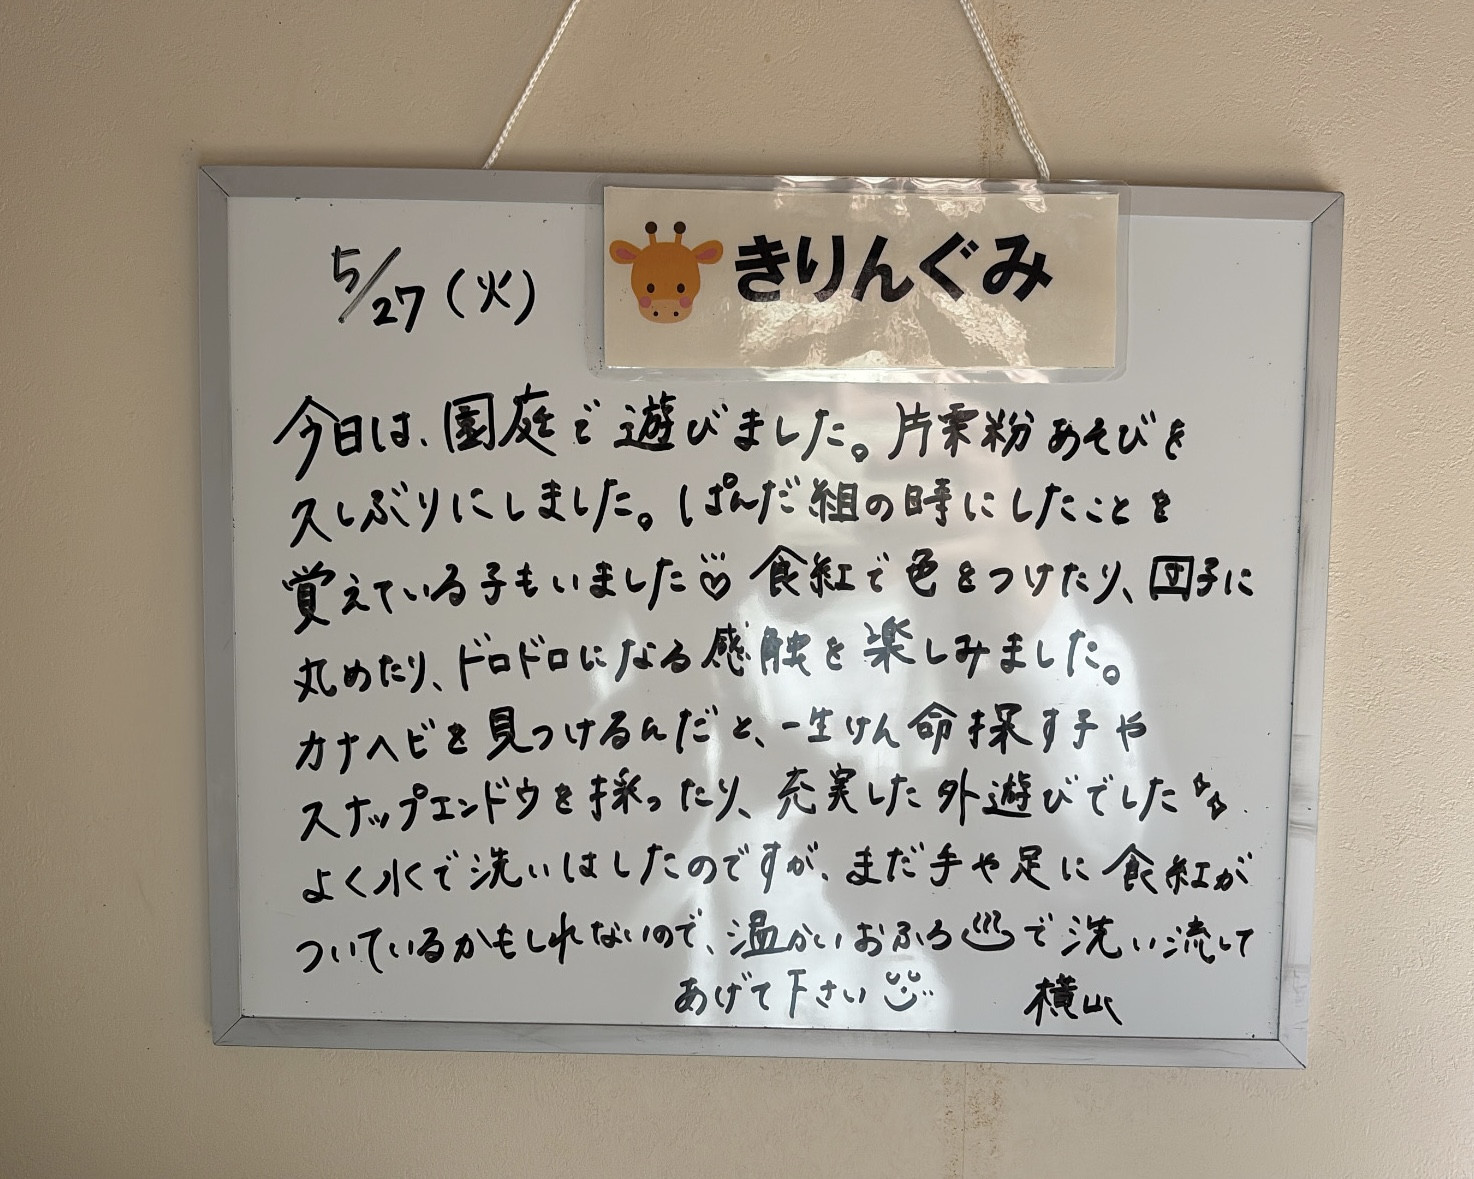 きりんぐみ
5/27（火）
今日は、園庭で遊びました。片栗粉あそびを
久しぶりにしました。ぱんだ組の時にしたことを
覚えている子もいました♡ 食紅で色をつけたり、団子に
丸めたり、ドロドロになる感触を楽しみました。
カナヘビを見つけるんだと、一生けん命探す子や
スナップエンドウを採ったり、充実した外遊びでした
よく水で洗いはしたのですが、まだ手や足に食紅が
ついているかもしれないので、温かいおふろ♨で洗い流して
あげて下さい 横山